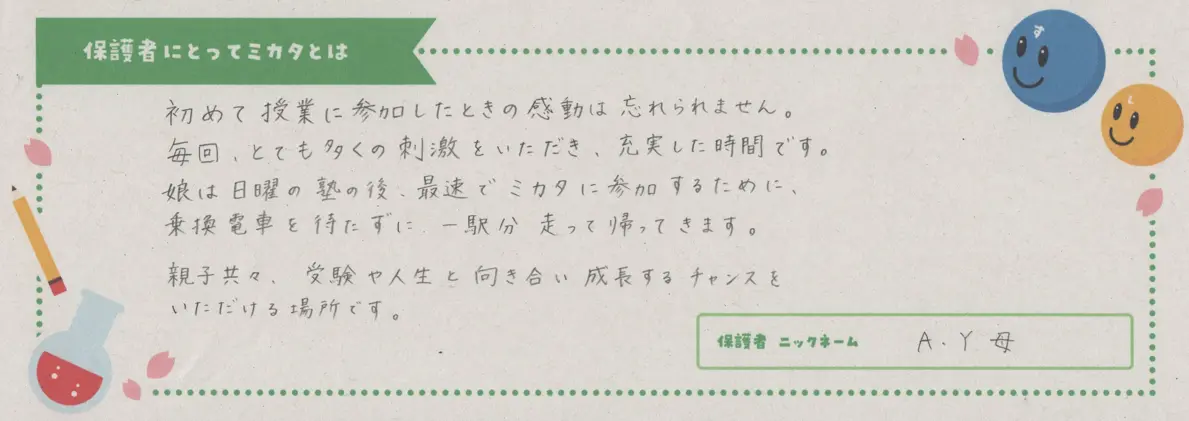 保護者にとってミカタとは
す
し
初めて授業に参加したときの感動は忘れられません。
毎回、とても多くの刺激をいただき、充実した時間です。
娘は日曜の塾の後、最速でミカタに参加するために、
乗換電車を待たずに、一駅分走って帰ってきます。
親子共々、受験や人生と向き合い成長するチャンスを
いただける場所です。
保護者 ニックネーム A.Y母